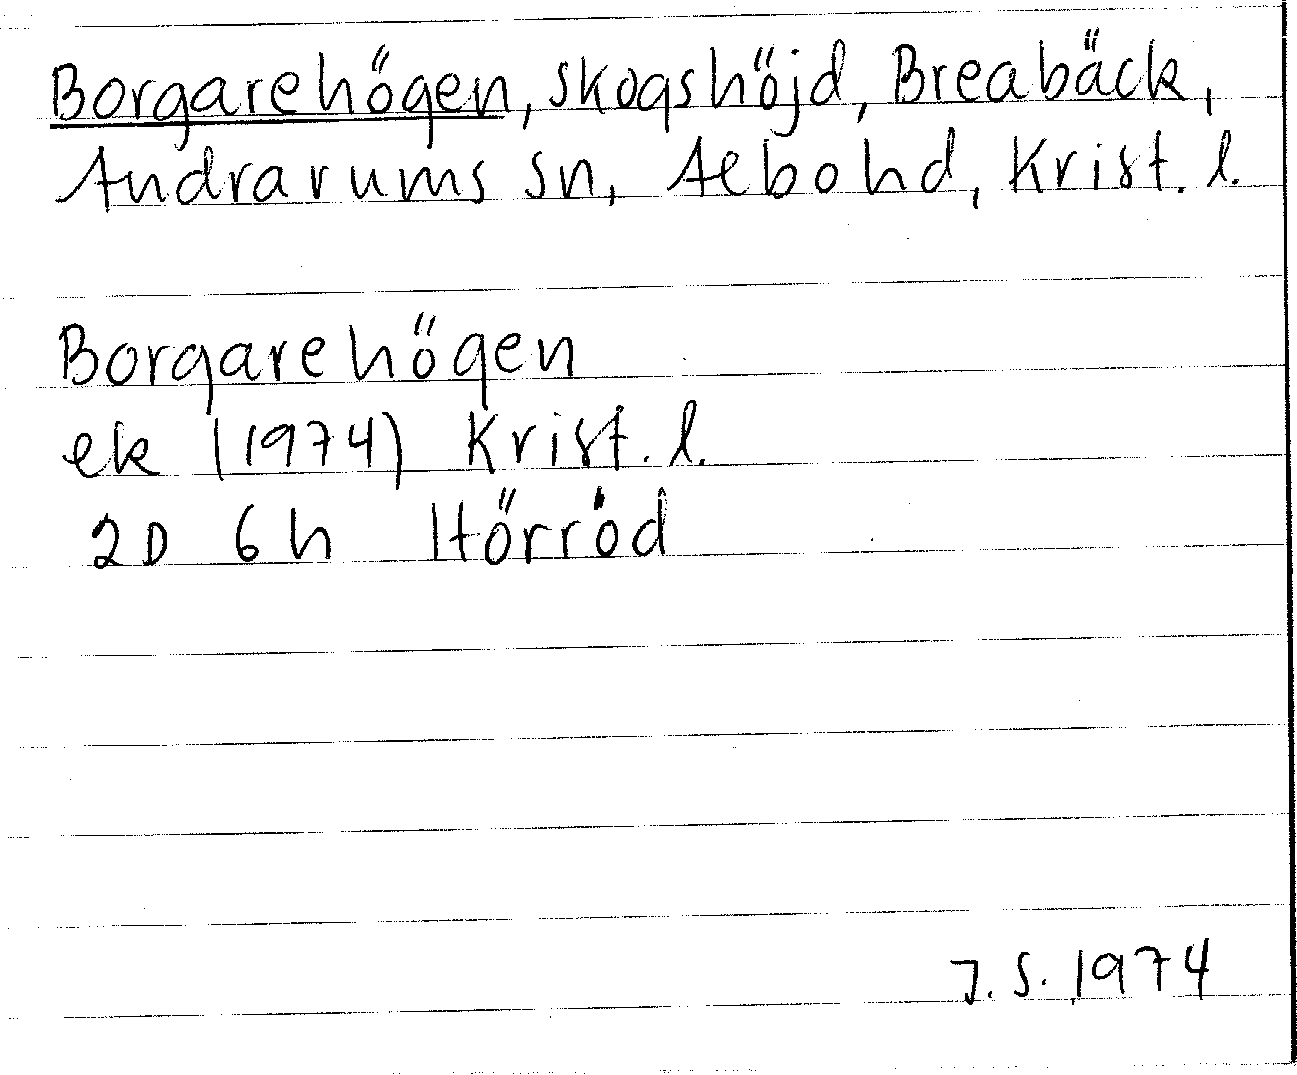 Borgarehögen, skogshöjd, Breabäck,
Andrarums sn, Albo hd, Krist. l.
Borgarehögen
ek (1974) Krist. l.
2D 6h Hörröd
J.S. 1974